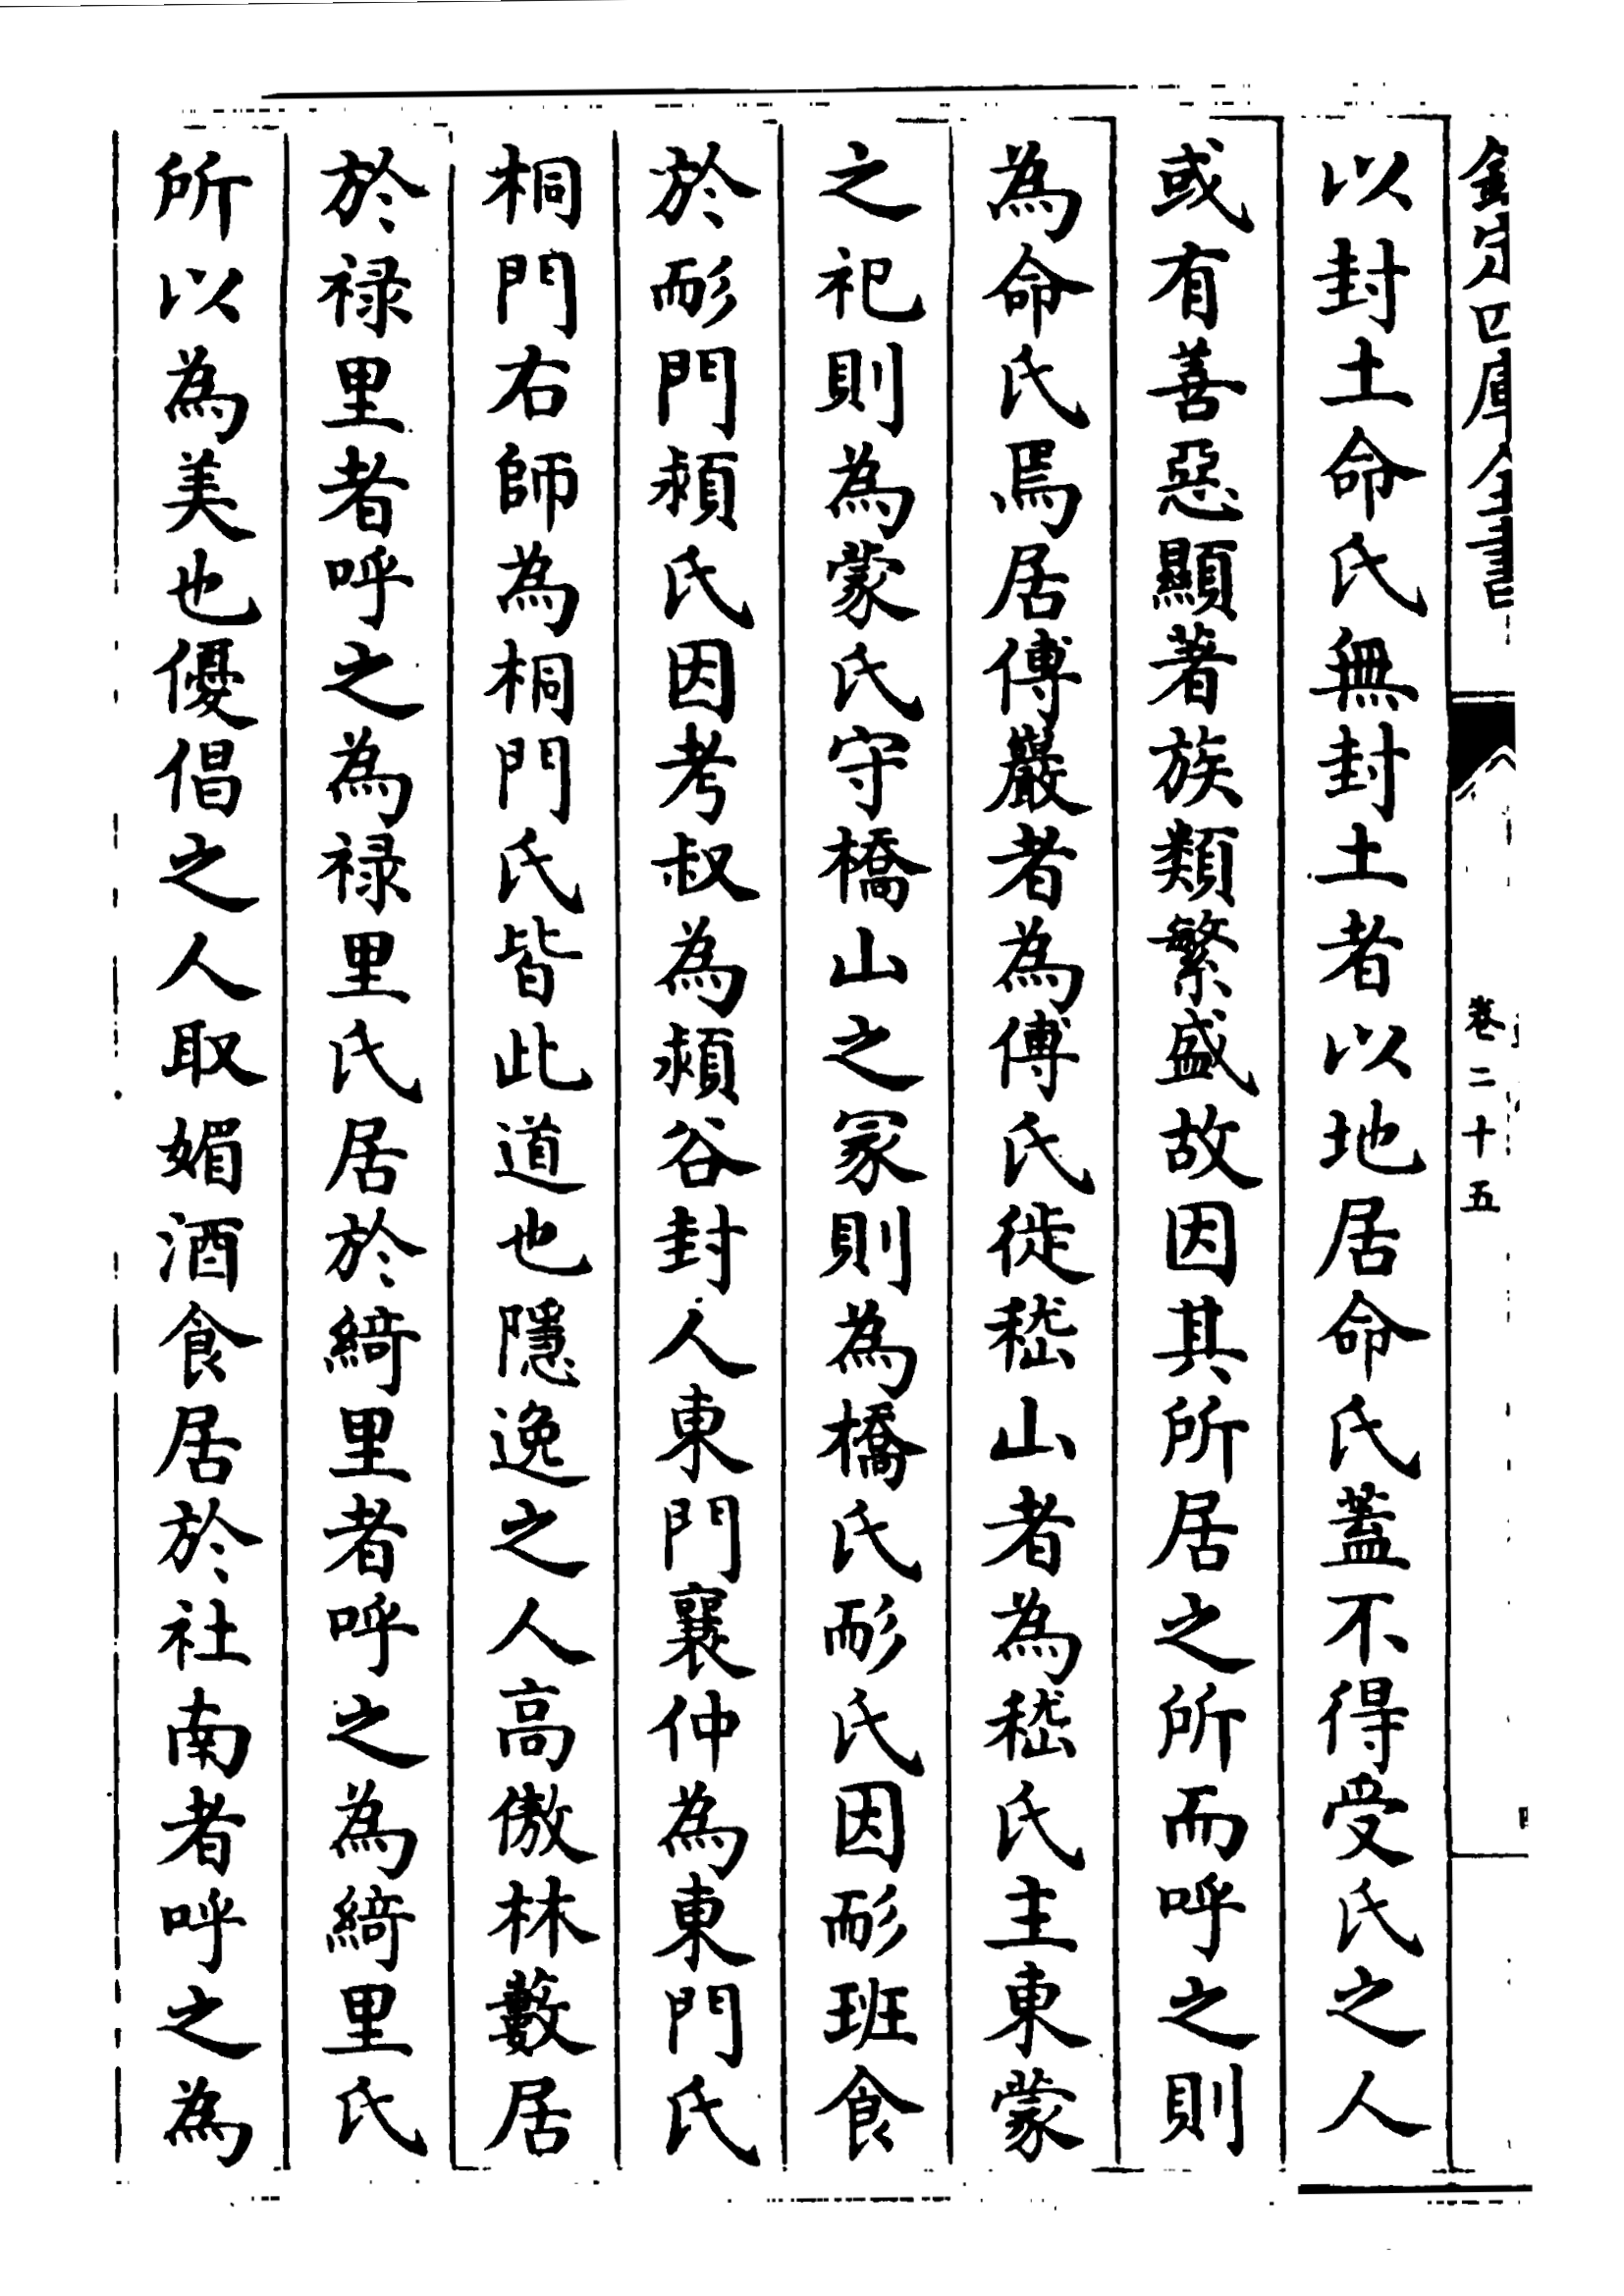 欽定四庫全書
卷二十五
以封土命氏無封土者以地居命氏蓋不得受氏之人
或有善惡顯著族類繁盛故因其所居之所而呼之則
為命氏焉居傅巖者為傅氏徙嵇山者為嵇氏主東蒙
之祀則為蒙氏守橋山之冢則為橋氏耏氏因耏班食
於耏門潁氏因考叔為潁谷封人東門襄仲為東門氏
桐門右師為桐門氏皆此道也隱逸之人高傲林藪居
於禄里者呼之為禄里氏居於綺里者呼之為綺里氏
所以為美也優倡之人取媚酒食居於社南者呼之為